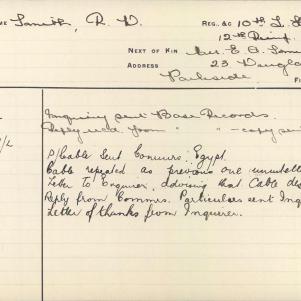 R. V. REG. &C 10th L. H.
12th Reinf.
NEXT OF KIN Mrs. E. A.
ADDRESS 23 Douglas
Parkside
Inquiry sent Base Records.
Reply recd. from " " - copy sent
P/Cable Sent Commrs. Egypt.
Cable repeated as previous one unintell
Letter to Enquirer, advising that Cable des
Reply from Commrs. Particulars sent Inq
Letter of thanks from Inquirer.